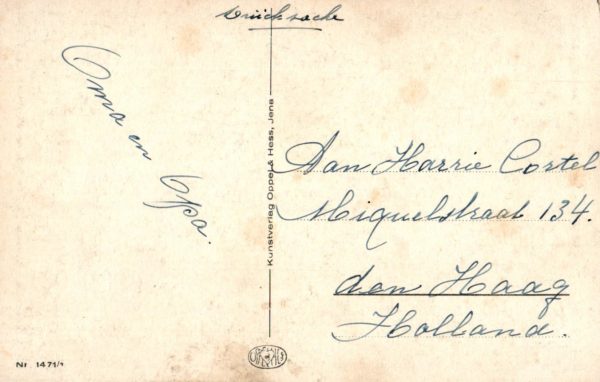 Drucksache
Oma en Opa.
Kunstverlag Oppel & Hess, Jena
Aan Harrie Costel
Miquelstraat 134.
den Haag
Holland.
Nr 1471/1